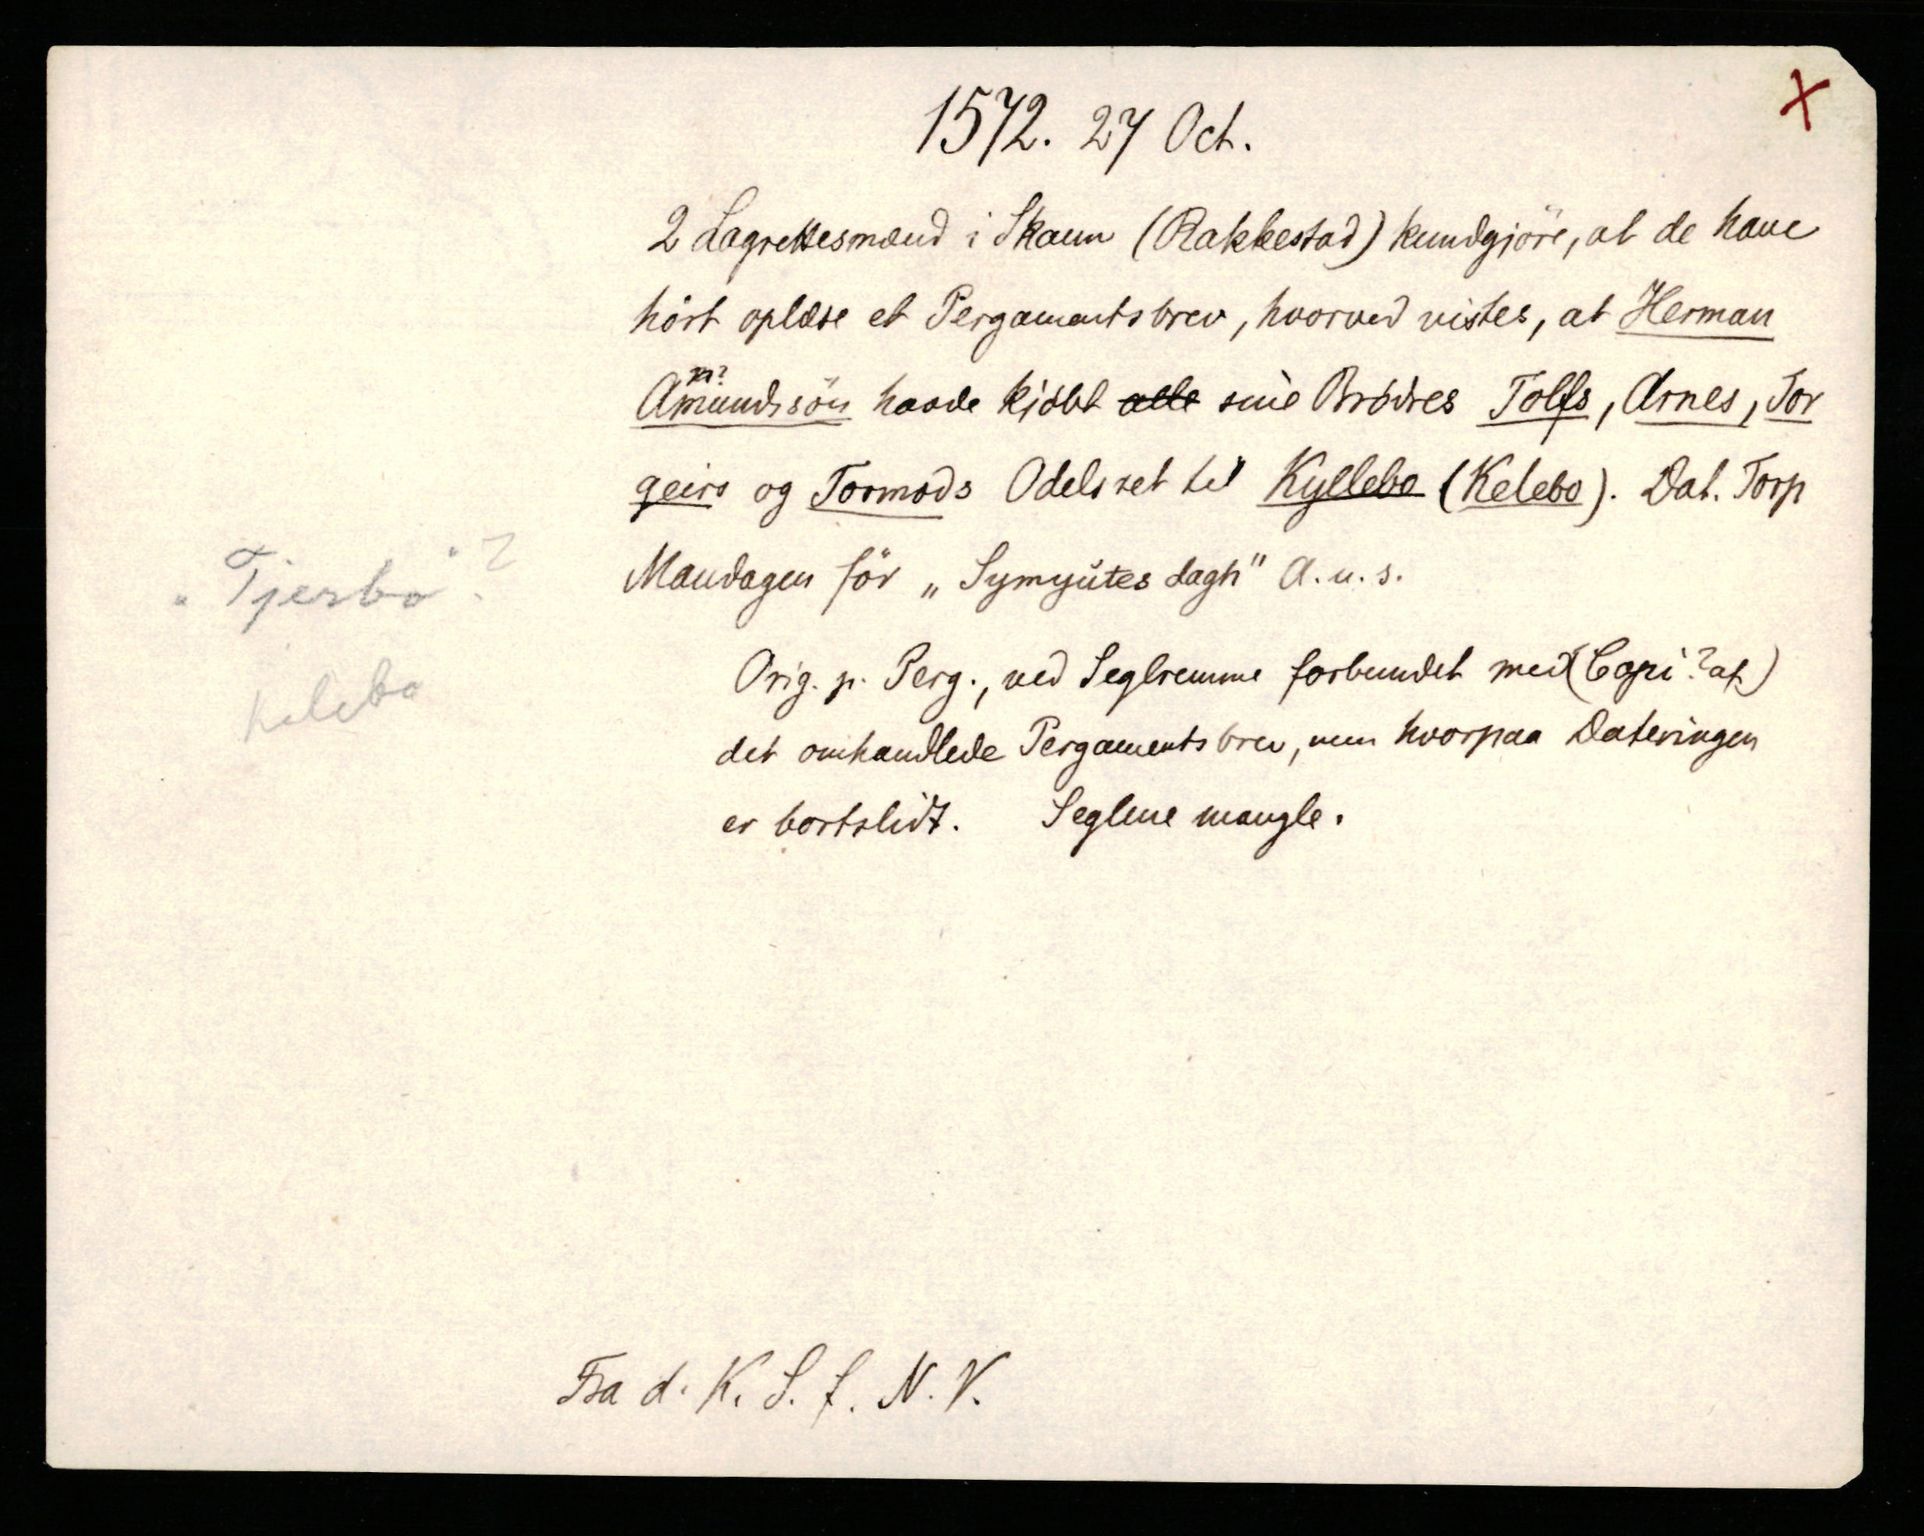 X
1572. 27 Oct.
2 Lagrettesmænd i Skaun (Rakkestad) kundgjöre, at de have
hört oplæse et Pergamentsbrev, hvorved vistes, at Herman
m?
Amundssön havde kjöbt alle sine Brödres Tolfs, Arnes, Tor
geirs og Tormods Odelsret til Kyllebo (Kelebo). Dat. Torp
Mandagen för „Symyútes dagh" A. u. s.
"Tjerbo"?
Kelebo
Orig. p. Perg., ved Seglremme forbundet med (Copi? af)
det omhandlede Pergamentsbrev, men hvorpaa Dateringen
er bortslidt. Seglene mangle.
Fra d. K. S. f. N. V.